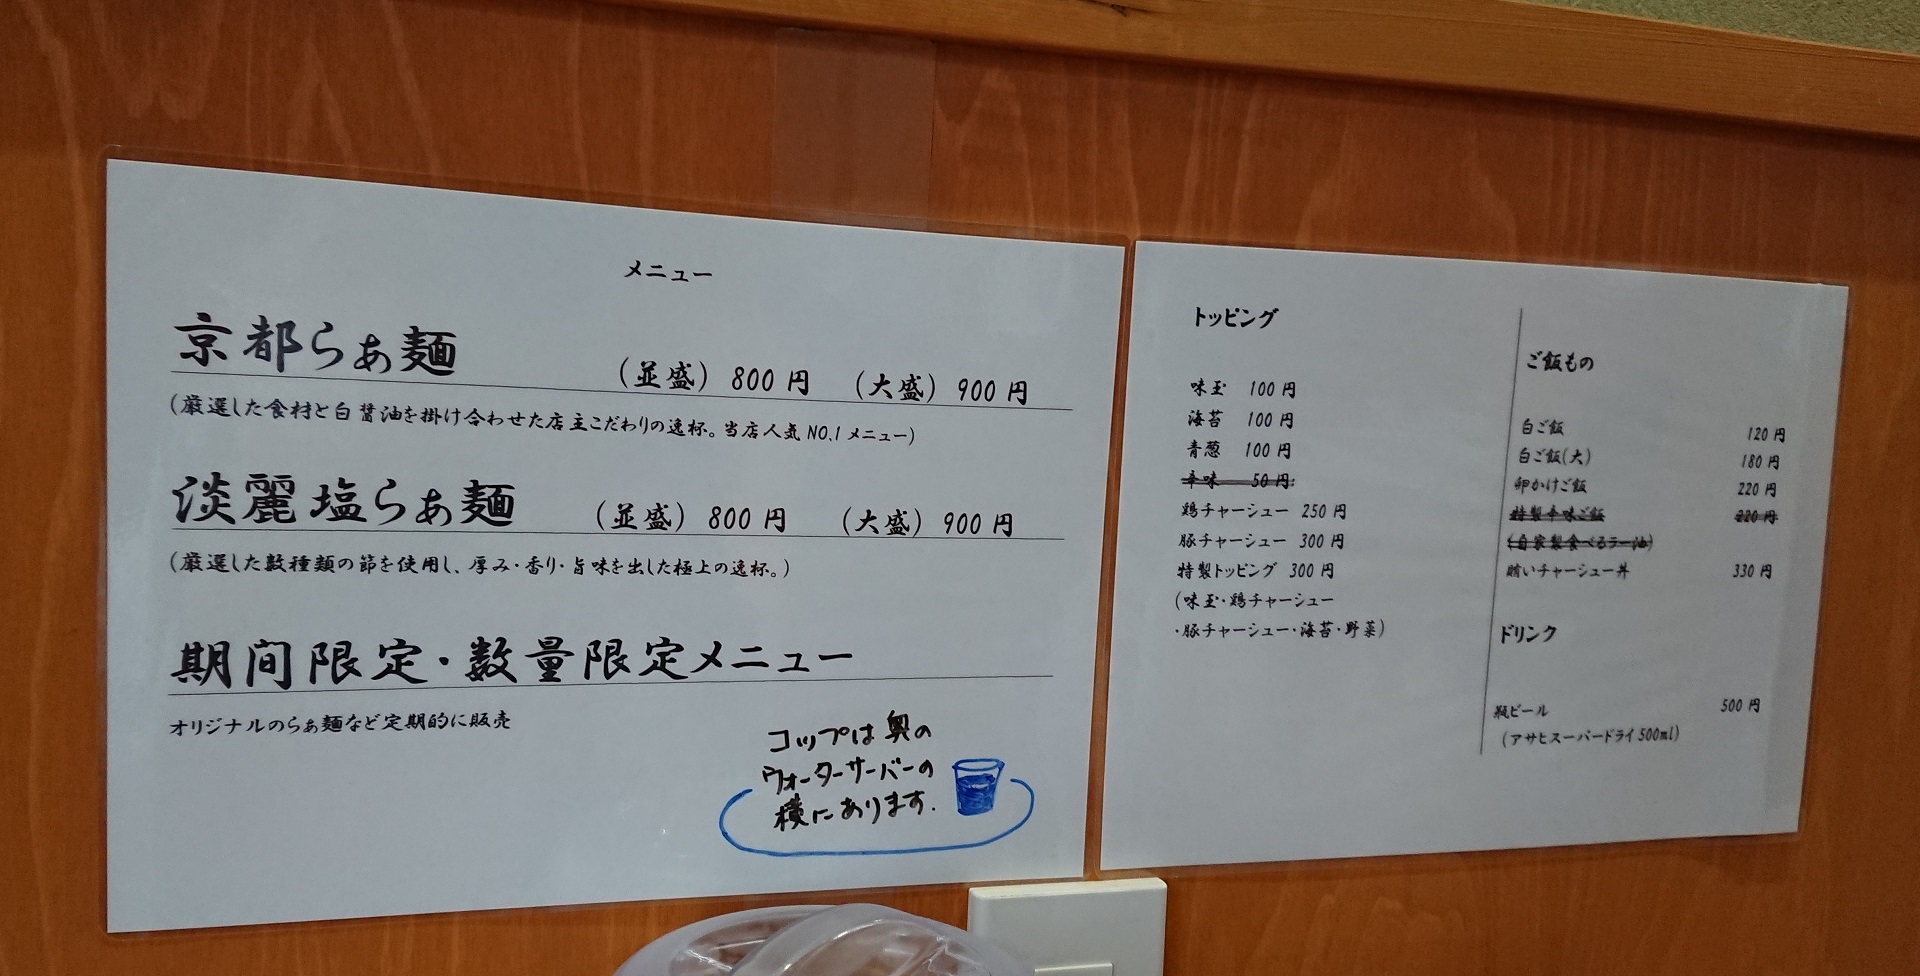 メニュー
京都らぁ麺 (並盛) 800円 (大盛) 900円
(厳選した食材と白醤油を掛け合わせた店主こだわりの逸杯。当店人気NO.1メニュー)
淡麗塩らぁ麺 (並盛) 800円 (大盛) 900円
(厳選した数種類の節を使用し、厚み・香り・旨味を出した極上の逸杯。)
期間限定・数量限定メニュー
オリジナルのらぁ麺など定期的に販売
コップは奥の
ウォーターサーバーの
横にあります.
トッピング
味玉 100円
海苔 100円
青葱 100円
辛味 50円
鶏チャーシュー 250円
豚チャーシュー 300円
特製トッピング 300円
(味玉・鶏チャーシュー
・豚チャーシュー・海苔・野菜)
ご飯もの
白ご飯 120円
白ご飯(大) 180円
卵かけご飯 220円
特製辛味ご飯 220円
(自家製食べるラー油)
賄いチャーシュー丼 330円
ドリンク
瓶ビール 500円
(アサヒスーパードライ500ml)